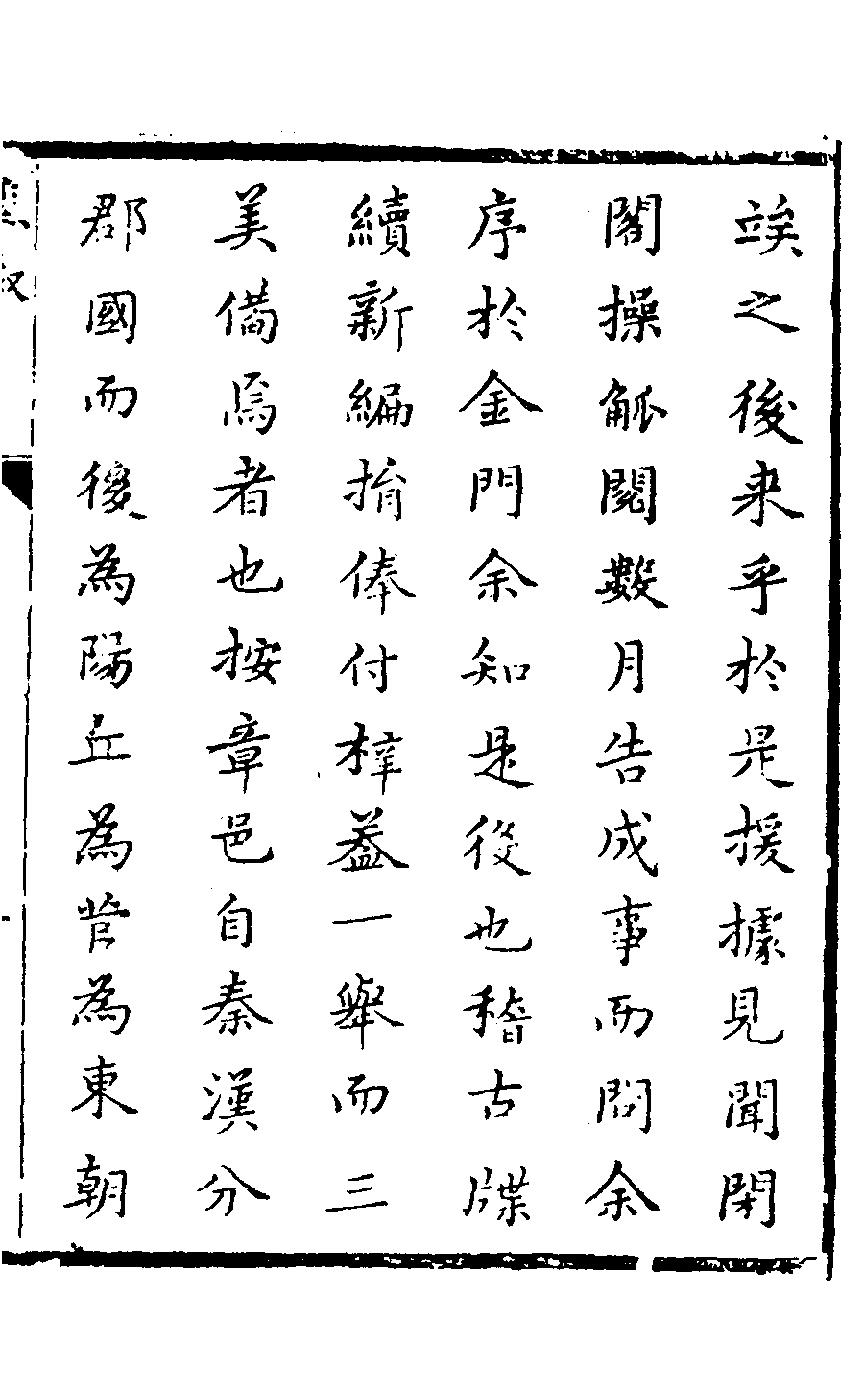 竢之後来乎於是援據見聞閉
閣操觚閱數月告成事而問余
序於金門余知是役也稽古牒
續新編捐俸付梓葢一舉而三
美備焉者也按章邑自秦漢分
郡國而後為陽丘為菅為東朝